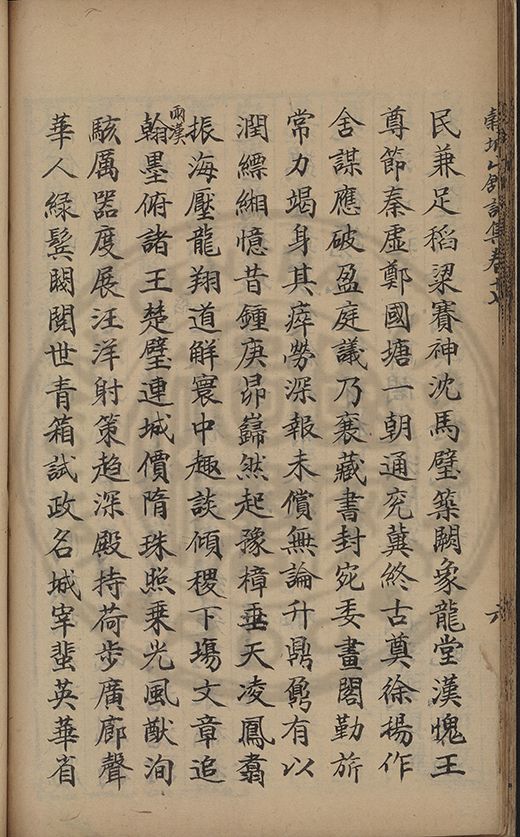 詩集卷
六
民兼足稻梁賽神沈馬璧築闕象龍堂漢愧王
尊節秦虛鄭國塘一朝通兗冀終古奠徐揚作
舍謀應破盈庭議乃襄藏書封宛委畫閣勤旂
常力竭身其瘁勞深報未償無論升鼎鼐有以
潤縹緗憶昔鍾庚昴巋然起豫樟垂天凌鳳翥
振海壓龍翔道觧寰中趣談傾稷下塲文章追
兩漢
翰墨俯諸王楚璧連城價隋珠照乘光風猷洵
駭厲器度展汪洋射策趨深殿持荷步廣廊聲
華人綠鬂閥閱世青箱試政名城宰蜚英華省